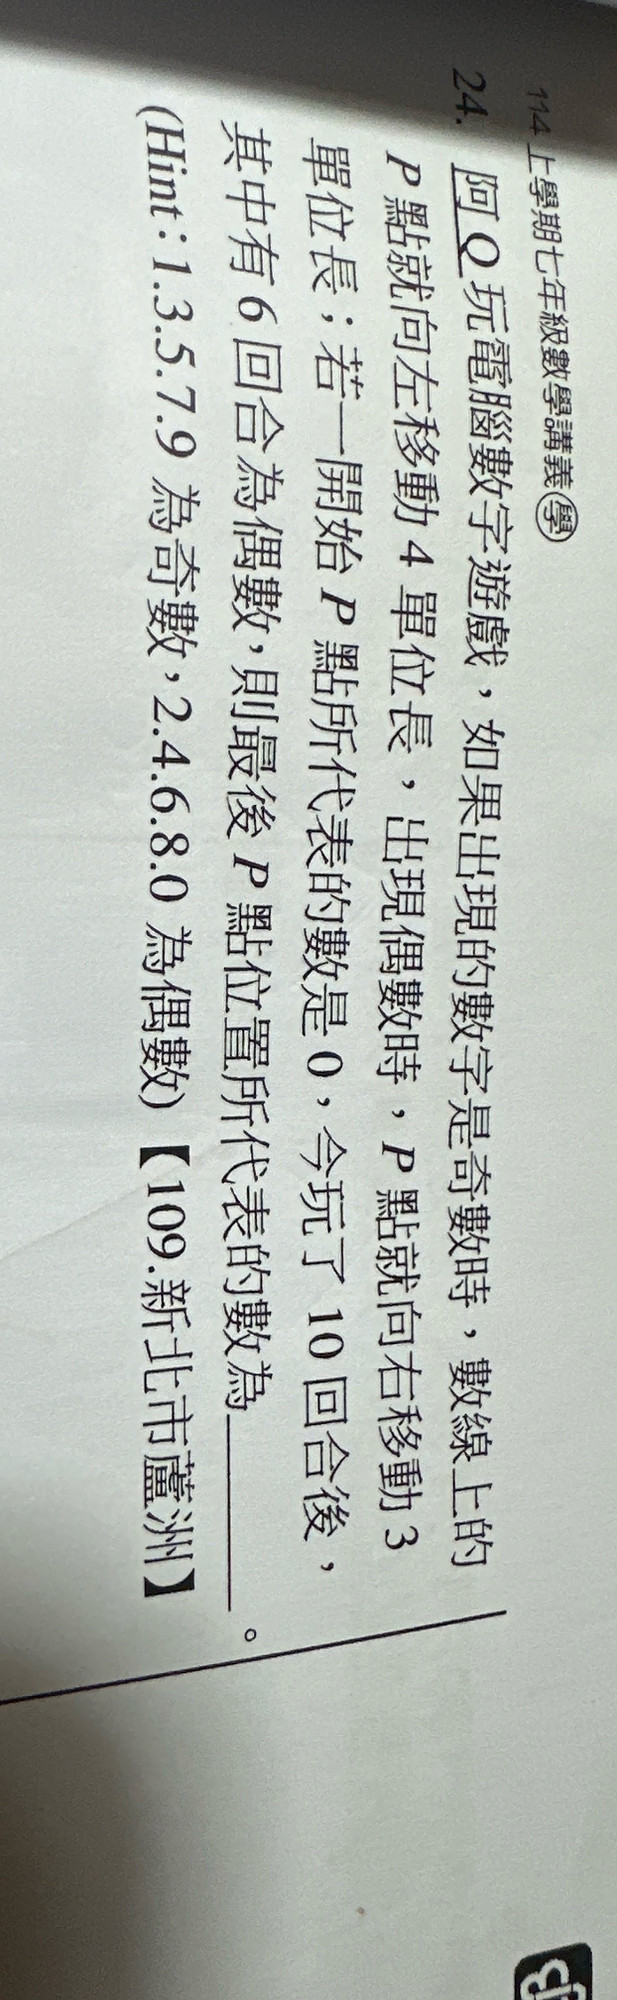 114 上學期七年級數學講義學
24. 阿Q玩電腦數字遊戲，如果出現的數字是奇數時，數線上的
P點就向左移動4單位長，出現偶數時，P點就向右移動3
單位長；若一開始P點所代表的數是0，今玩了10回合後，
其中有6回合為偶數，則最後P點位置所代表的數為______。
(Hint：1.3.5.7.9 為奇數，2.4.6.8.0 為偶數)【109.新北市蘆洲】